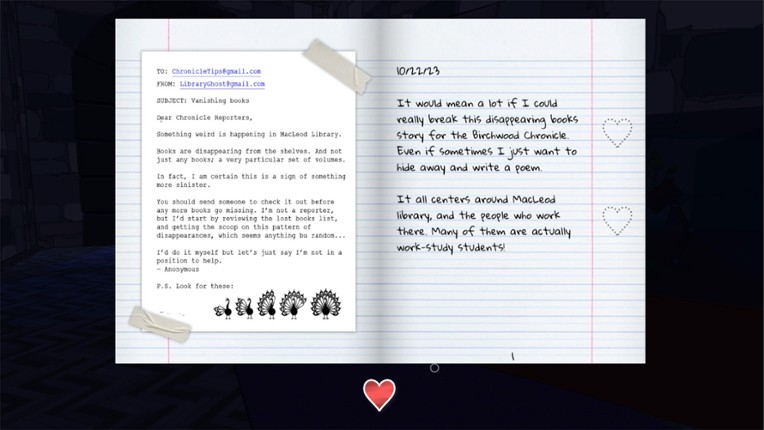 TO: ChronicleTips@gmail.com
FROM: LibraryGhost@gmail.com
SUBJECT: Vanishing books
Dear Chronicle Reporters,
Something weird is happening in MacLeod Library.
Books are disappearing from the shelves. And not
just any books; a very particular set of volumes.
In fact, I am certain this is a sign of something
more sinister.
You should send someone to check it out before
any more books go missing. I'm not a reporter,
but I'd start by reviewing the lost books list,
and getting the scoop on this pattern of
disappearances, which seems anything bu random...
I'd do it myself but let's just say I'm not in a
position to help.
- Anonymous
P.S. Look for these:
10/22/23
It would mean a lot if I could
really break this disappearing books
story for the Birchwood Chronicle.
Even if sometimes I just want to
hide away and write a poem.
It all centers around MacLeod
library, and the people who work
there. Many of them are actually
work-study students!
1